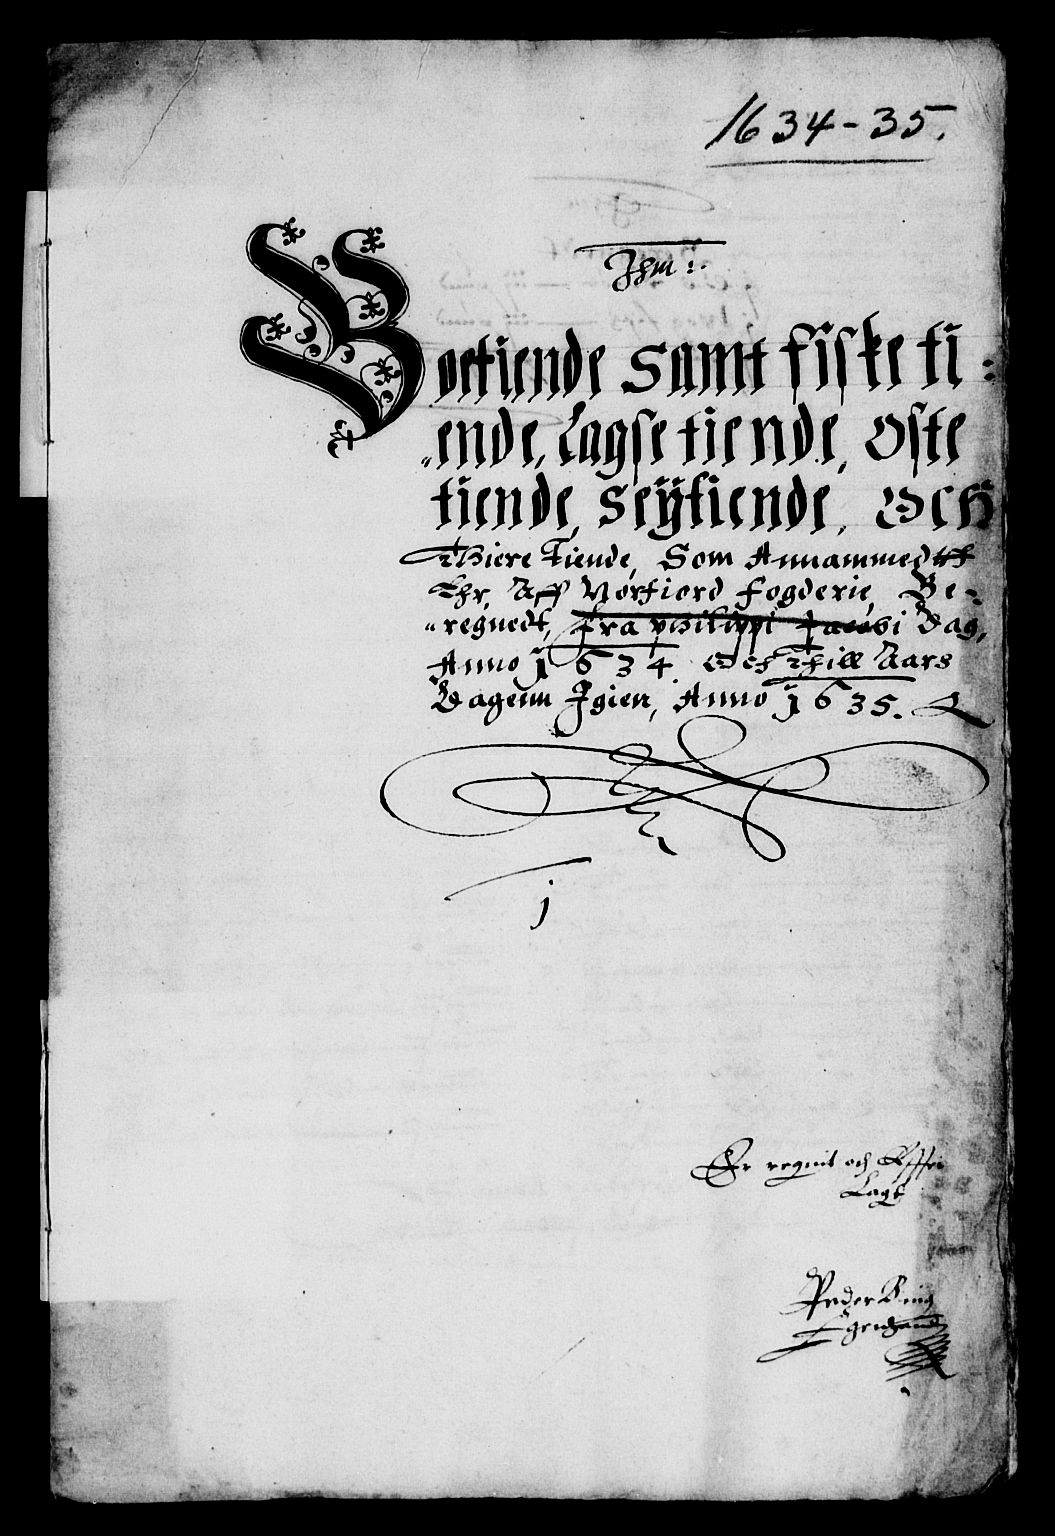 1634-35.
Jhm:.
Boetiende Samt fiske ti:
ende, Lagse tiende, Oste
tiende, Seÿtiende, Och
Thiere Tiende, Som Annammed
Ehr, Aff Norfiord fogderie, Be-
regnedt, fra philippi Jacobi Dag,
Anno 1634. Och Thill Aars
Dagenn Igien, Anno 1635.
j
Er regnit och
Lagt
Peder
Egenhand